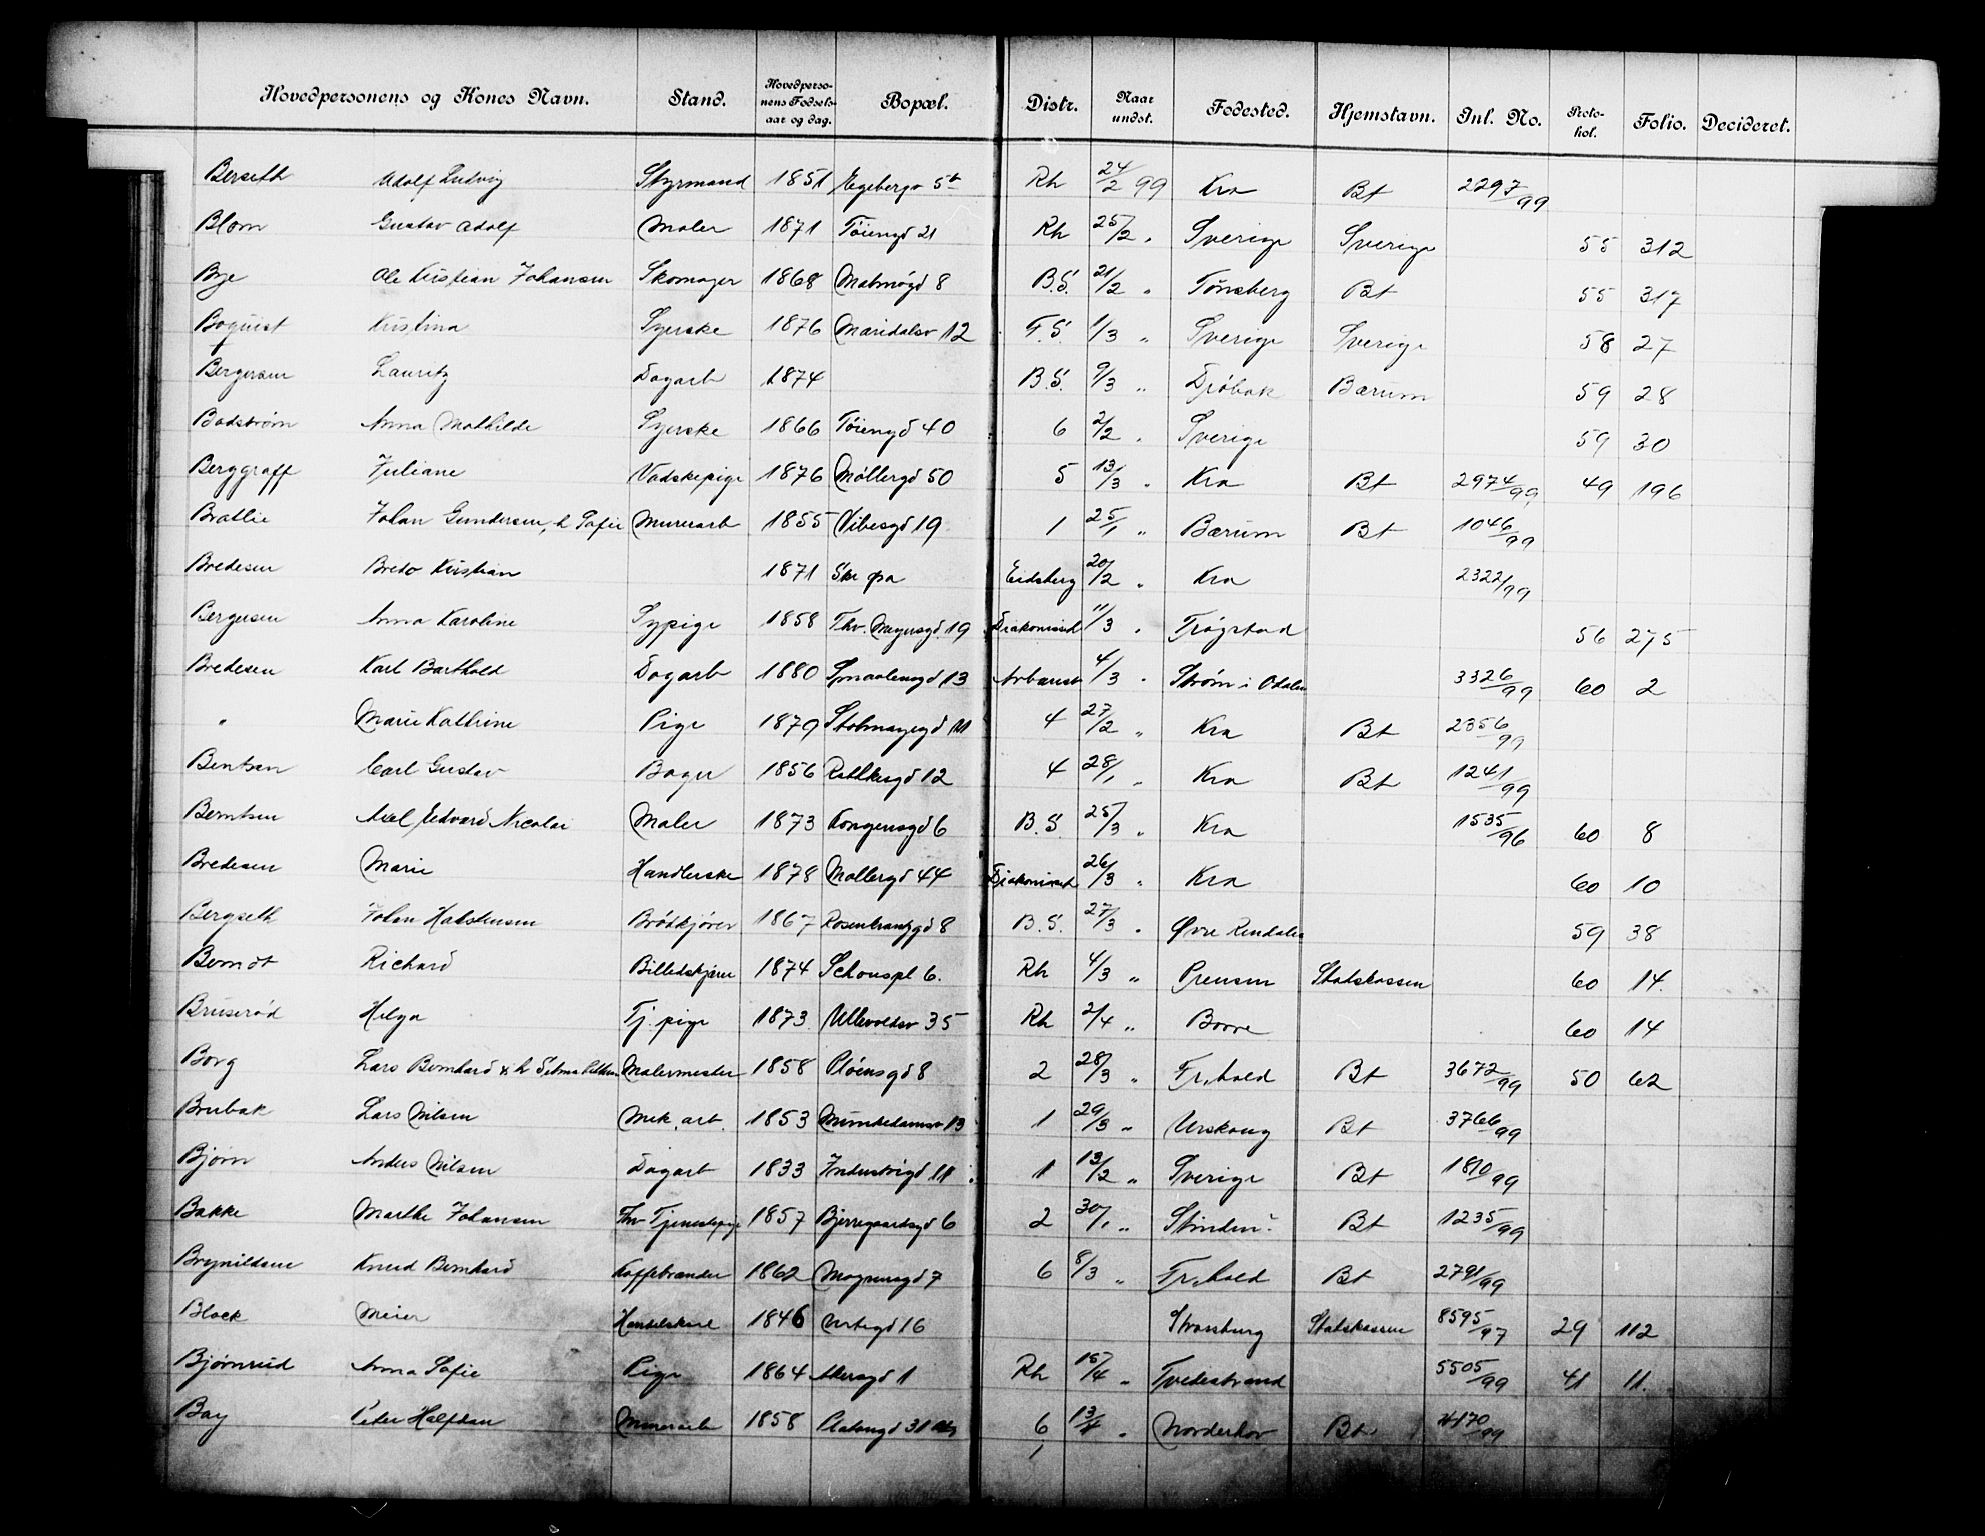 Hovedpersonens og Kones Navn. Stand. Hovedpersonens Fødselsaar og dag. Bopæl. Distr. Naar undst. Fødested. Hjemstavn. Inl. No. Protokol. Folio. Decideret.
Berseth Adolf Ludvig Styrmand 1851 Egebergv 5b Rh 24/2 99 Kra Bt 2297/99
Blom Gustav Adolf Maler 1871 Tøiengd 21 Rh 25/2 " Sverige Sverige 55 312
Bye Ole Kristian Johansen Skomager 1868 Malmøgd 8 B.S. 21/2 " Tønsberg Bt 55 317
Boquist Kristina Syerske 1876 Maridalsv 12 F.S. 1/3 " Sverige Sverige 58 27
Bergersen Lauritz Dagarb 1874 B.S. 9/3 " Drøbak Bærum 59 28
Badstrøm Anna Mathilde Syerske 1866 Tøiengd 40 6 2/2 " Sverige 59 30
Berggraff Juliane Vadskepige 1876 Møllergd 50 5 13/3 " Kra Bt 2974/99 49 196
Bratlie Johan Gundersen, h Sofie Murerarb 1855 Vibesgd 19 1 25/1 " Bærum Bt 1046/99
Bredesen Bredo Kristian 1871 Eidsberg 20/2 " Kra 2322/99
Bergersen Anna Karoline Sypige 1858 Thv. Meyersgd 19 Diakonissd 11/3 " Trøgstad 56 275
Bredesen Karl Barthold Dagarb 1880 Smaalensgd 13 Arbanst 4/3 " Strøm i Odalen 3326/99 60 2
" Marie Kathrine Pige 1879 Stolmagergd 11 4 27/2 " Kra Bt 2356/99
Bentsen Carl Gustav Bager 1856 Rathkesgd 12 4 28/1 " Kra Bt 1241/99
Berntsen Axel Edvard Nicolai Maler 1873 Kongensgd 6 B.S 25/3 " Kra 1535/96 60 8
Bredesen Marie Handlerske 1878 Møllergd 44 Diakonissd 26/3 " Kra 60 10
Bergseth Johan Halstensen Brødkjører 1867 Rosenkrantzgd 8 B.S. 27/3 " Øvre Rendalen 59 38
Berndt Richard Billedskjærer 1874 Schouspl 6. Rh 4/3 " Preusen Statskassen 60 14.
Bruserød Helga Tj. pige 1873 Ullevoldsv 35 Rh 2/4 " Borre 60 14
Borg Lars Bernhard & h Malermester 1858 Pløensgd 8 2 28/3 " Fr.hald Bt 3672/99 50 62
Brubak Lars Nilsen Mek. arb. 1853 Munkedamsv 13 1 29/3 " Urskoug Bt 3766/99
Bjørn Anders Nilsen Dagarb 1833 Industrigd 11 1 13/2 " Sverige Bt 1810/99
Bakke Marthe Johansen Thv Tjenestepige 1857 Bjerregaardsgd 6 2 30/1 " Bt 1235/99
Brynildsen Knud Bernhard Kaffebrænder 1862 Magnusgd 7 6 8/3 " Fr.hald Bt 2791/99
Block Meier Handelskarl 1846 Vertsgd 16 Strassburg Statskassen 8595/97 29 112
Bjørnrud Anna Sofie Pige 1864 Akersgd 1 Rh 15/4 " Tvedestrand 5505/99 41 11.
Bay Peter Halfdan Murerarb 1858 Platousgd 31 6 13/4 " Norderhov Bt 4170/99